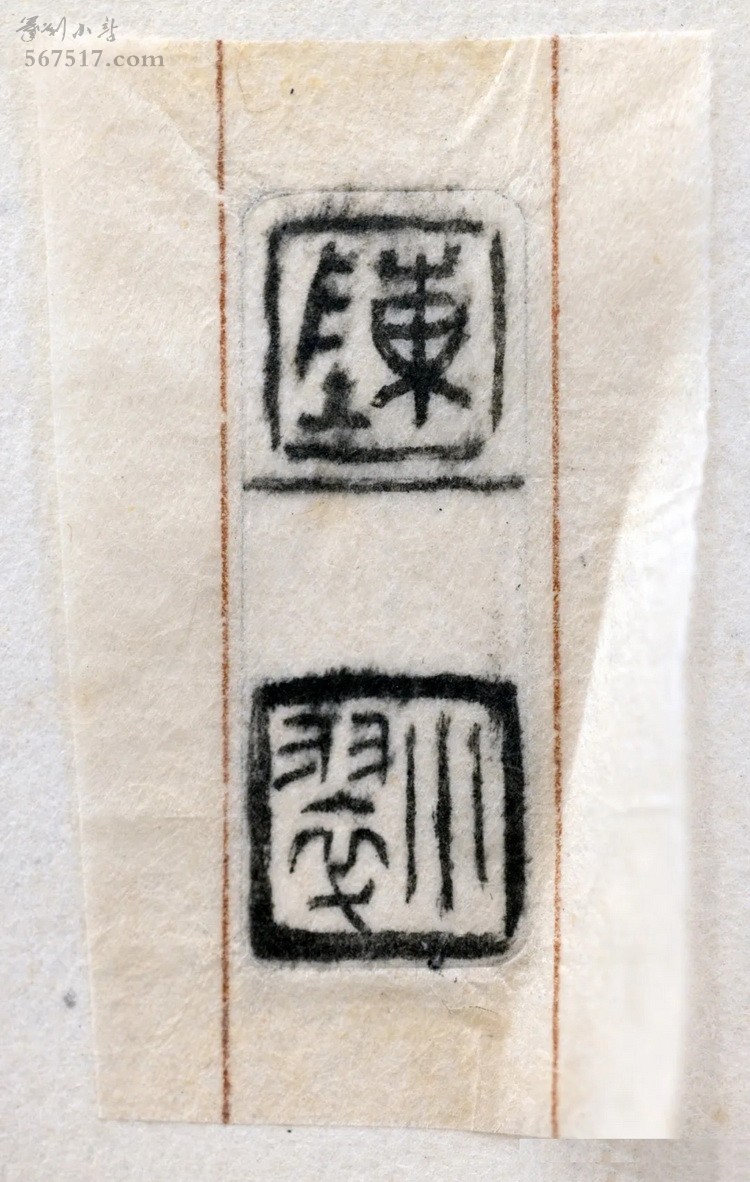 篆刻小站
567517.com
陳
小翠